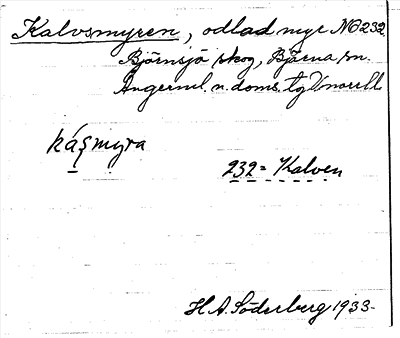 Kalvsmyren, odlad myr NO 232
Björnsjö skog, Bjärna sn.
Ångerml. n. doms.
káşmyra
232 = Kalven
H. A. Söderberg 1933